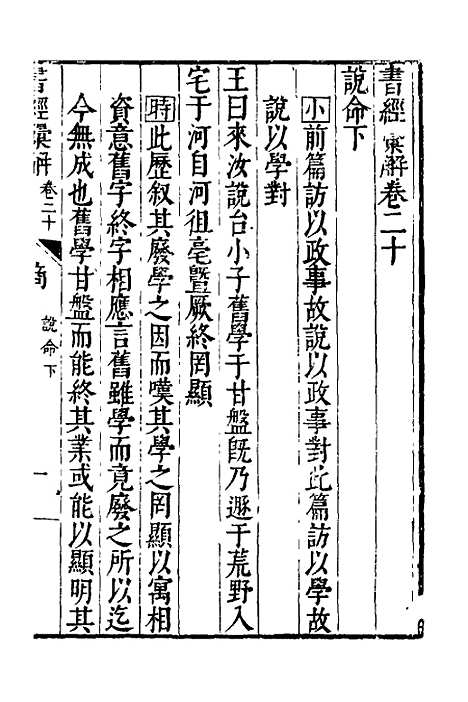 書經彙解卷二十
說命下
小前篇訪以政事故說以政事對此篇訪以學故
說以學對
王曰來汝說台小子舊學于甘盤既乃遯于荒野入
宅于河自河徂亳暨厥終罔顯
時此歷叙其廢學之因而嘆其學之罔顯以寓相
資意舊字終字相應言舊雖學而竟廢之所以迄
今無成也舊學甘盤而能終其業或能以顯明其
書經彙解 卷二十 商 說命下 一